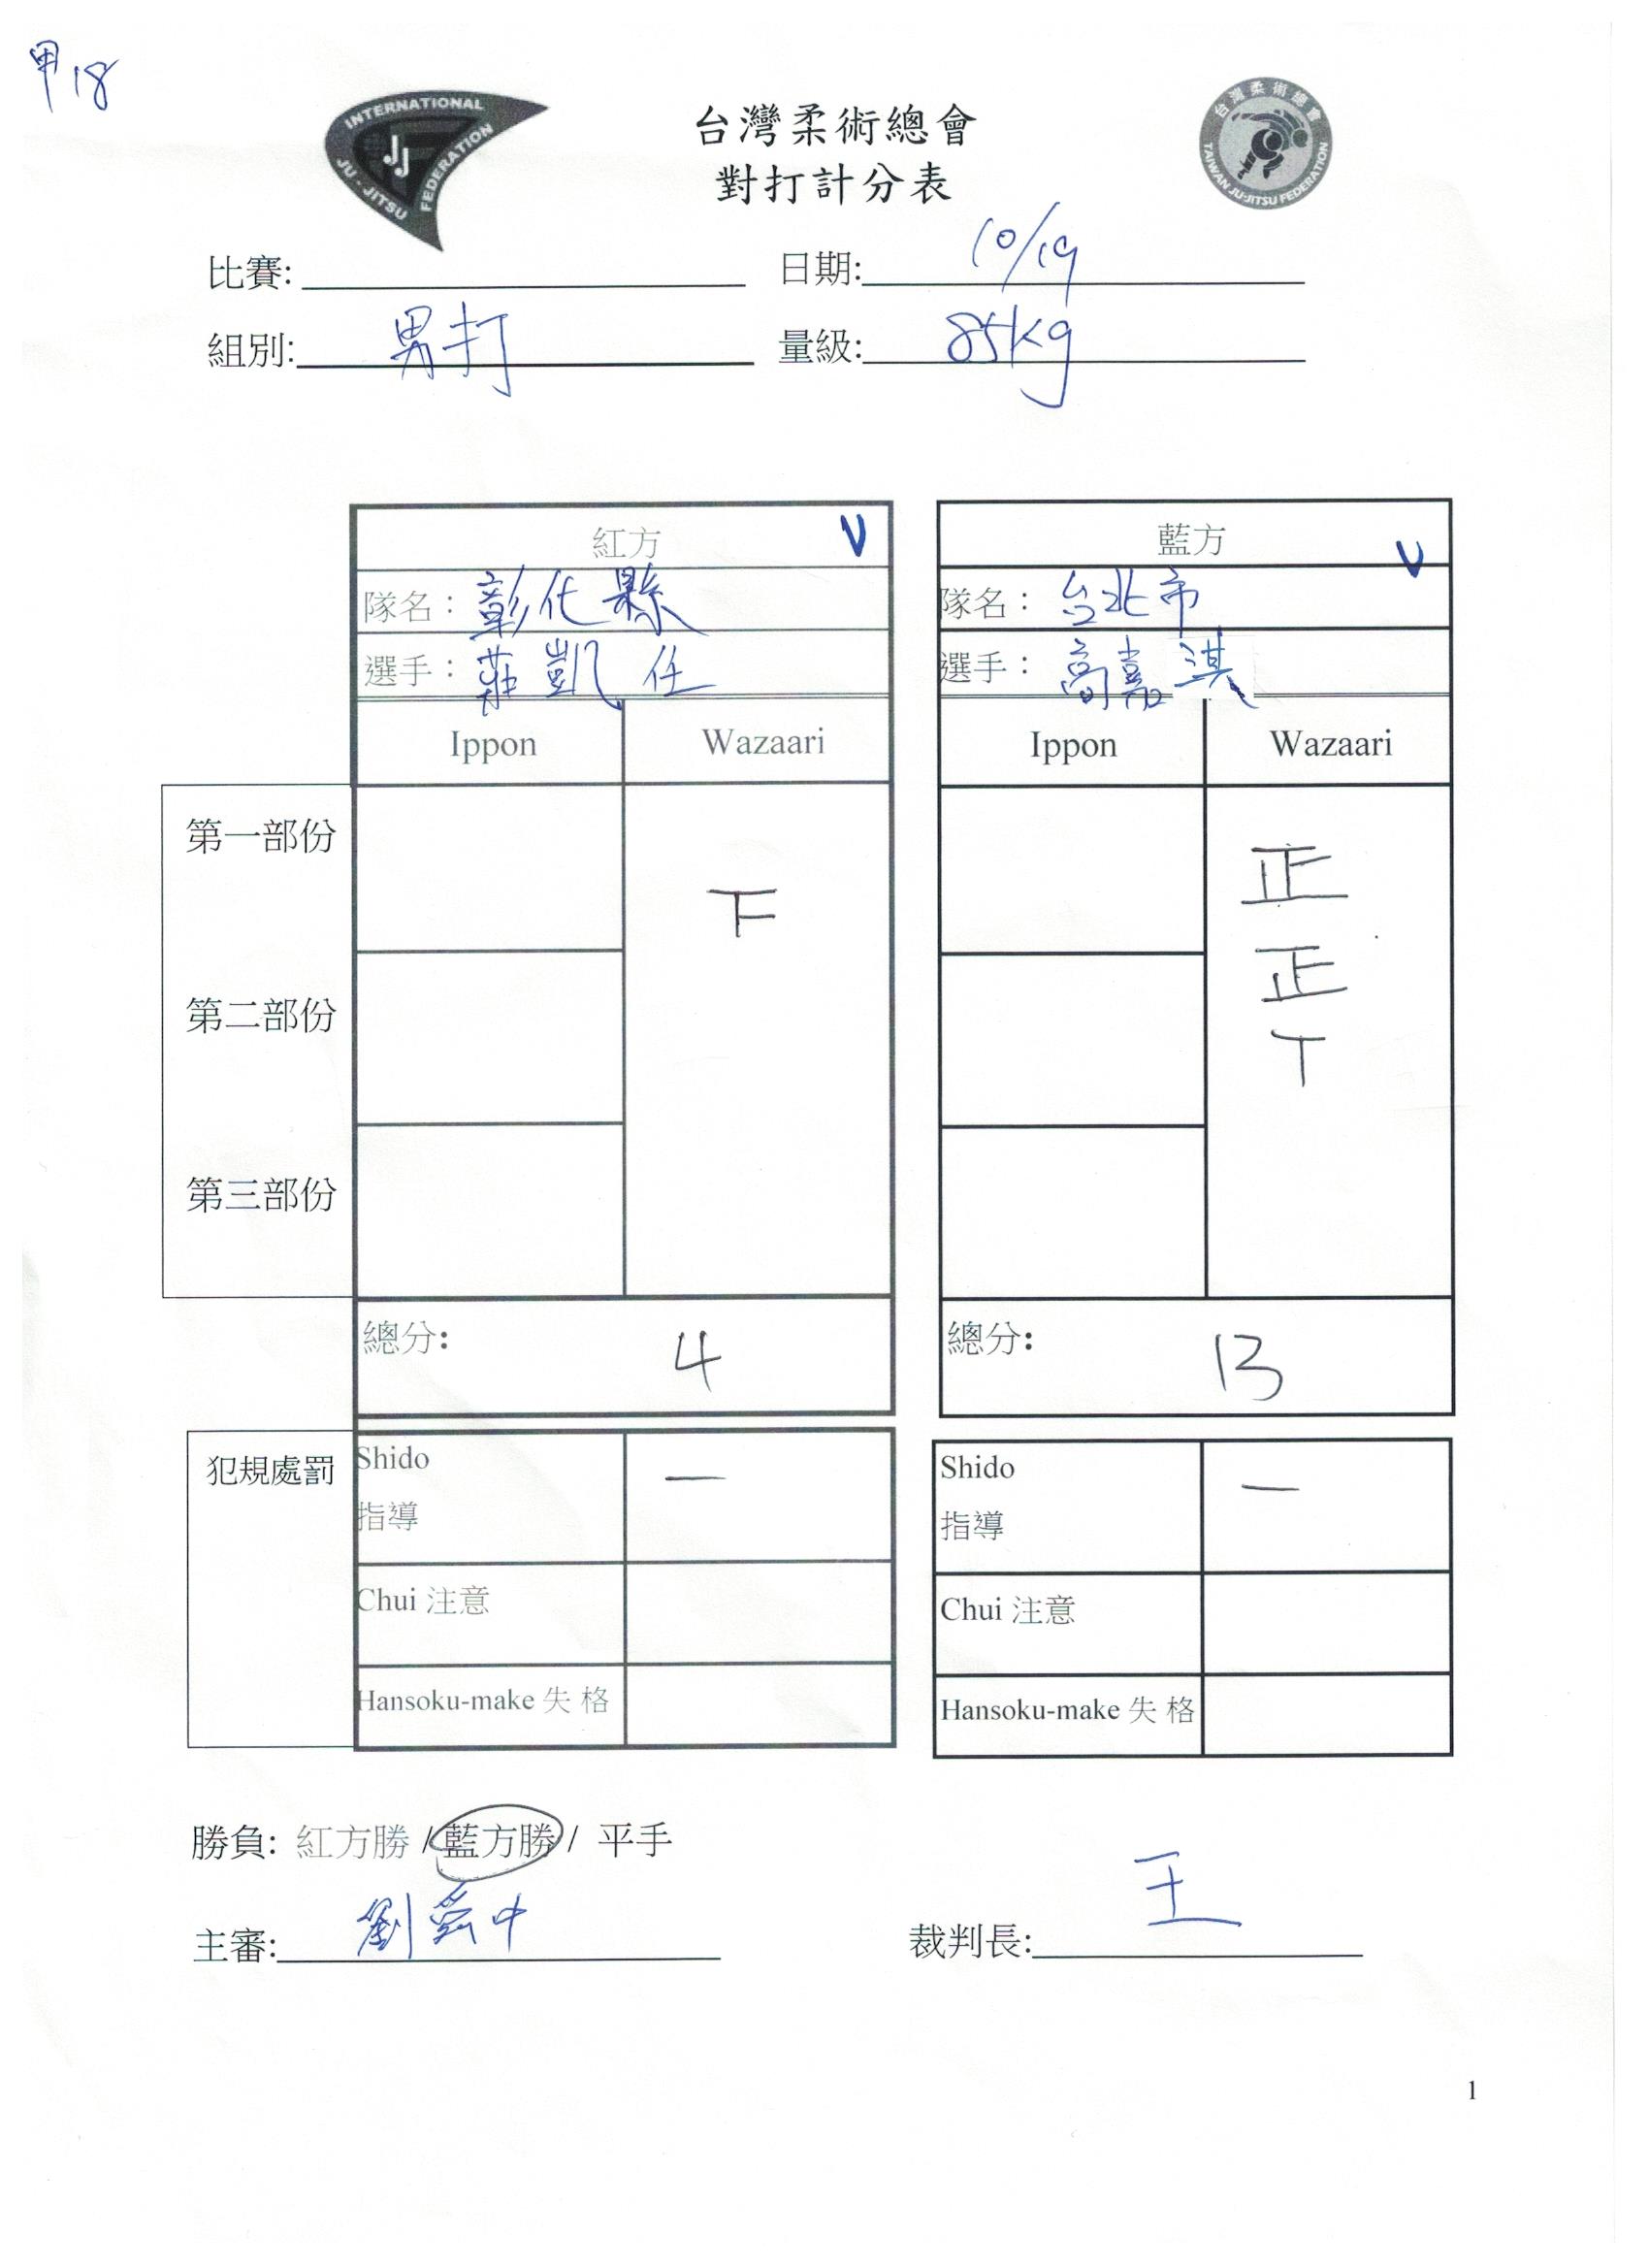 甲18
INTERNATIONAL JU-JITSU FEDERATION
JJ
台灣柔術總會
對打計分表
台灣柔術總會 TAIWAN JU-JITSU FEDERATION
比賽: 日期: 10/19
組別: 男打 量級: 85kg
紅方 V 藍方 V
隊名: 彰化縣 隊名: 台北市
選手: 莊凱任 選手: 高嘉淇
Ippon Wazaari Ippon Wazaari
第一部份 正
下
正
第二部份 T
第三部份
總分: 4 總分: 13
犯規處罰 Shido 一 Shido 一
指導 指導
Chui 注意 Chui 注意
Hansoku-make 失格 Hansoku-make 失格
勝負: 紅方勝 / 藍方勝 / 平手
主審: 劉 中 裁判長: 王
1